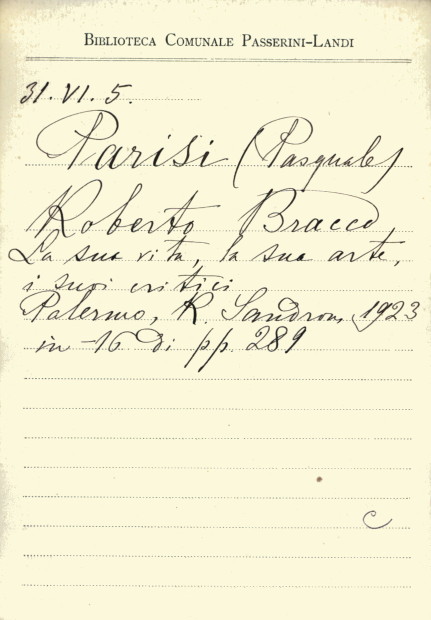 BIBLIOTECA COMUNALE PASSERINI-LANDI
31. VI. 5.
Parisi (Pasquale)
Roberto Bracco
La sua vita, la sua arte,
i suoi critici
Palermo, R. Sandron, 1923
in-16 di pp. 289
C